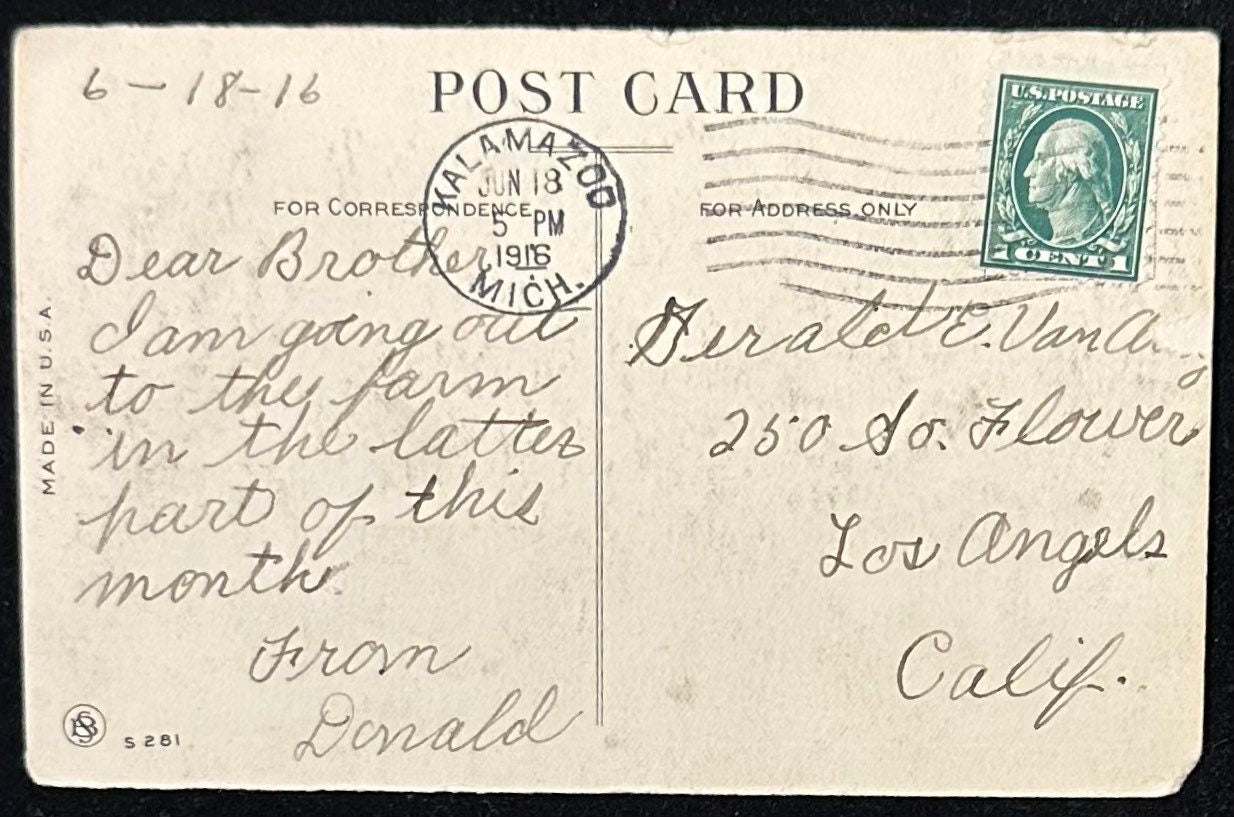 6-18-16
POST CARD
KALAMAZOO
JUN 18
5 PM
1916
MICH.
U.S. POSTAGE
1 CENT 1
FOR CORRESPONDENCE
FOR ADDRESS ONLY
Dear Brother
I am going out
to the farm
in the latter
part of this
month
From
Donald
Gerald E. Van
250 So. Flower
Los Angels
Calif.
MADE IN U.S.A.
S 281